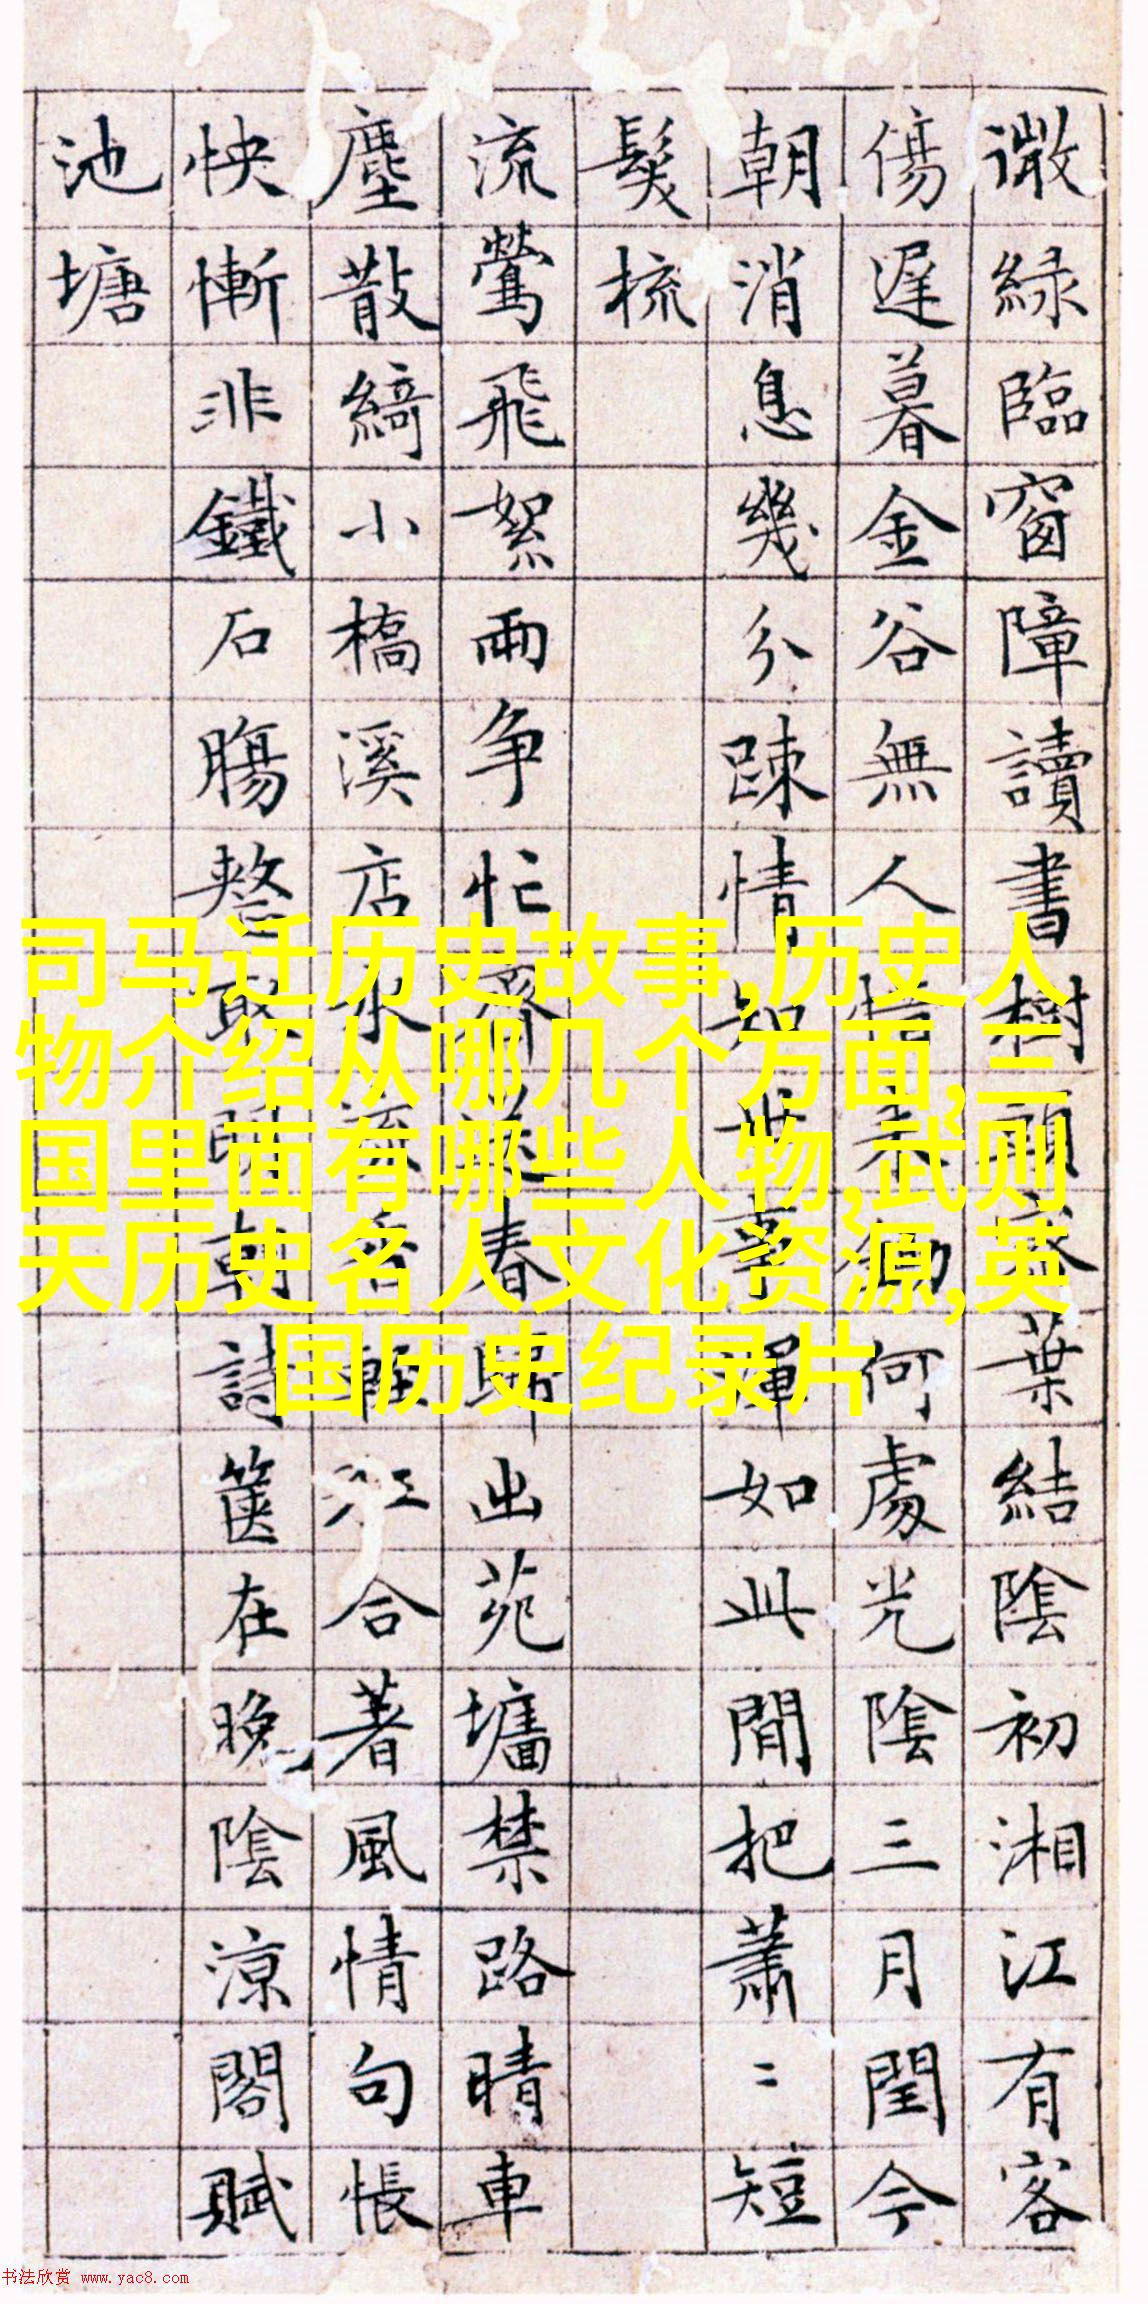 微綠臨窗障讀書樹葉結陰初湘江有客
傷遲暮金谷無人惜何處光陰三月閏今
朝消息幾分踈情知世事渾如此閒把蕭〻短
髮梳
流鶯飛絮兩争忙齊送春歸出苑墻禁路晴車
塵散綺小橋溪店水流香江合著風情句悵
怏慚非鐵石腸敢詩篋在晚陰涼閣賦
池塘
司马迁历史故事,历史人
物介绍从哪几个方面,三
国里面有哪些人物,武则
天历史名人文化资源,英
国历史纪录片
书法欣赏 www.yac8.com